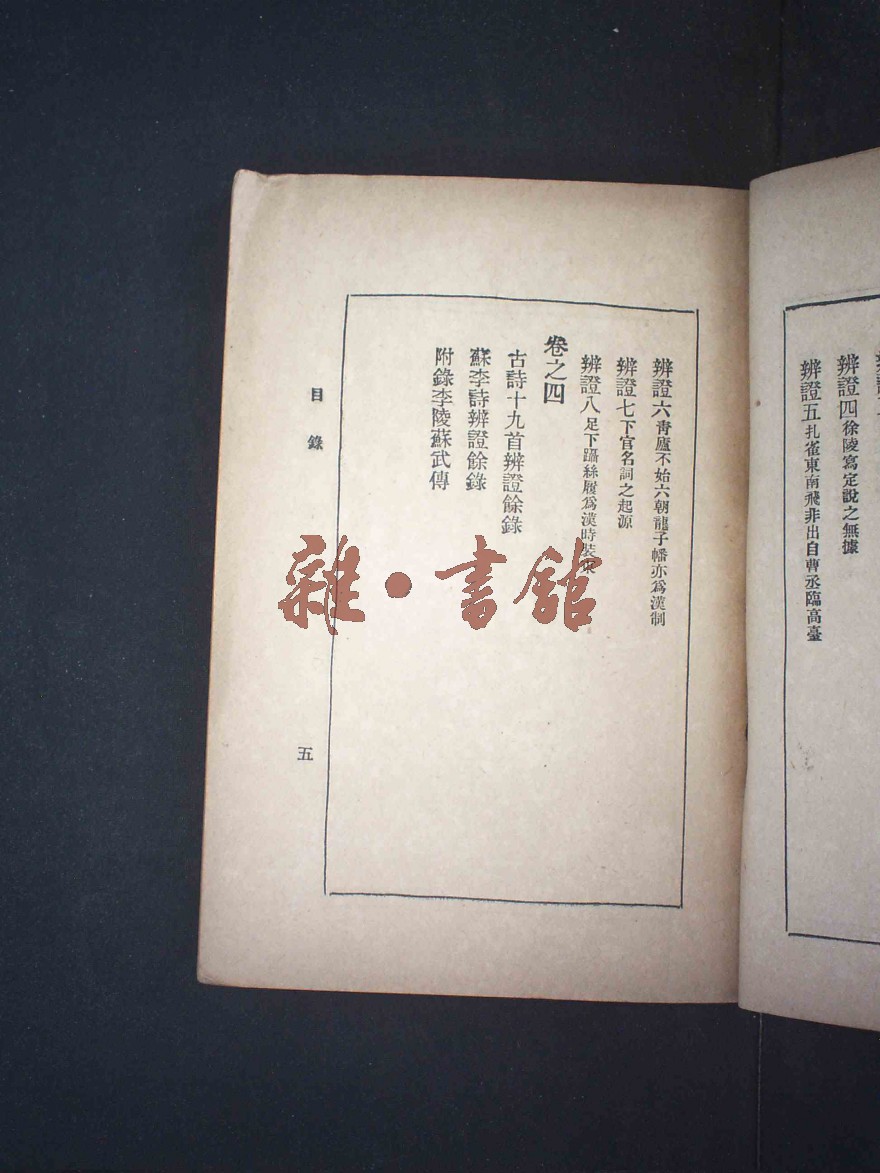 辨證四徐陵寫定說之無據
辨證五孔雀東南飛非出自曹丕臨高臺
辨證六青廬不始六朝龍子幡亦爲漢制
辨證七下官名詞之起源
辨證八足下躡絲履爲漢時裝束
卷之四
古詩十九首辨證餘錄
蘇李詩辨證餘錄
附錄李陵蘇武傳
目錄
五
雜·書館